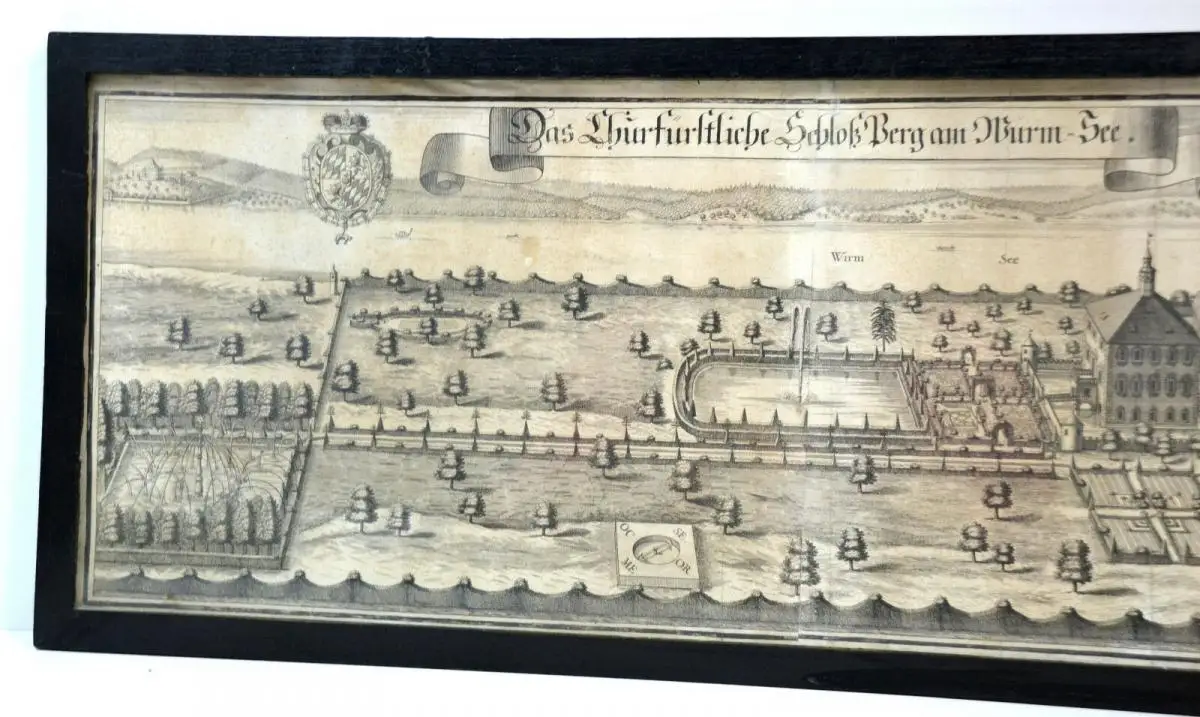 Das Churfürstliche Schloß Berg am Wurm-See.
Wirm See
OC SE
ME OR